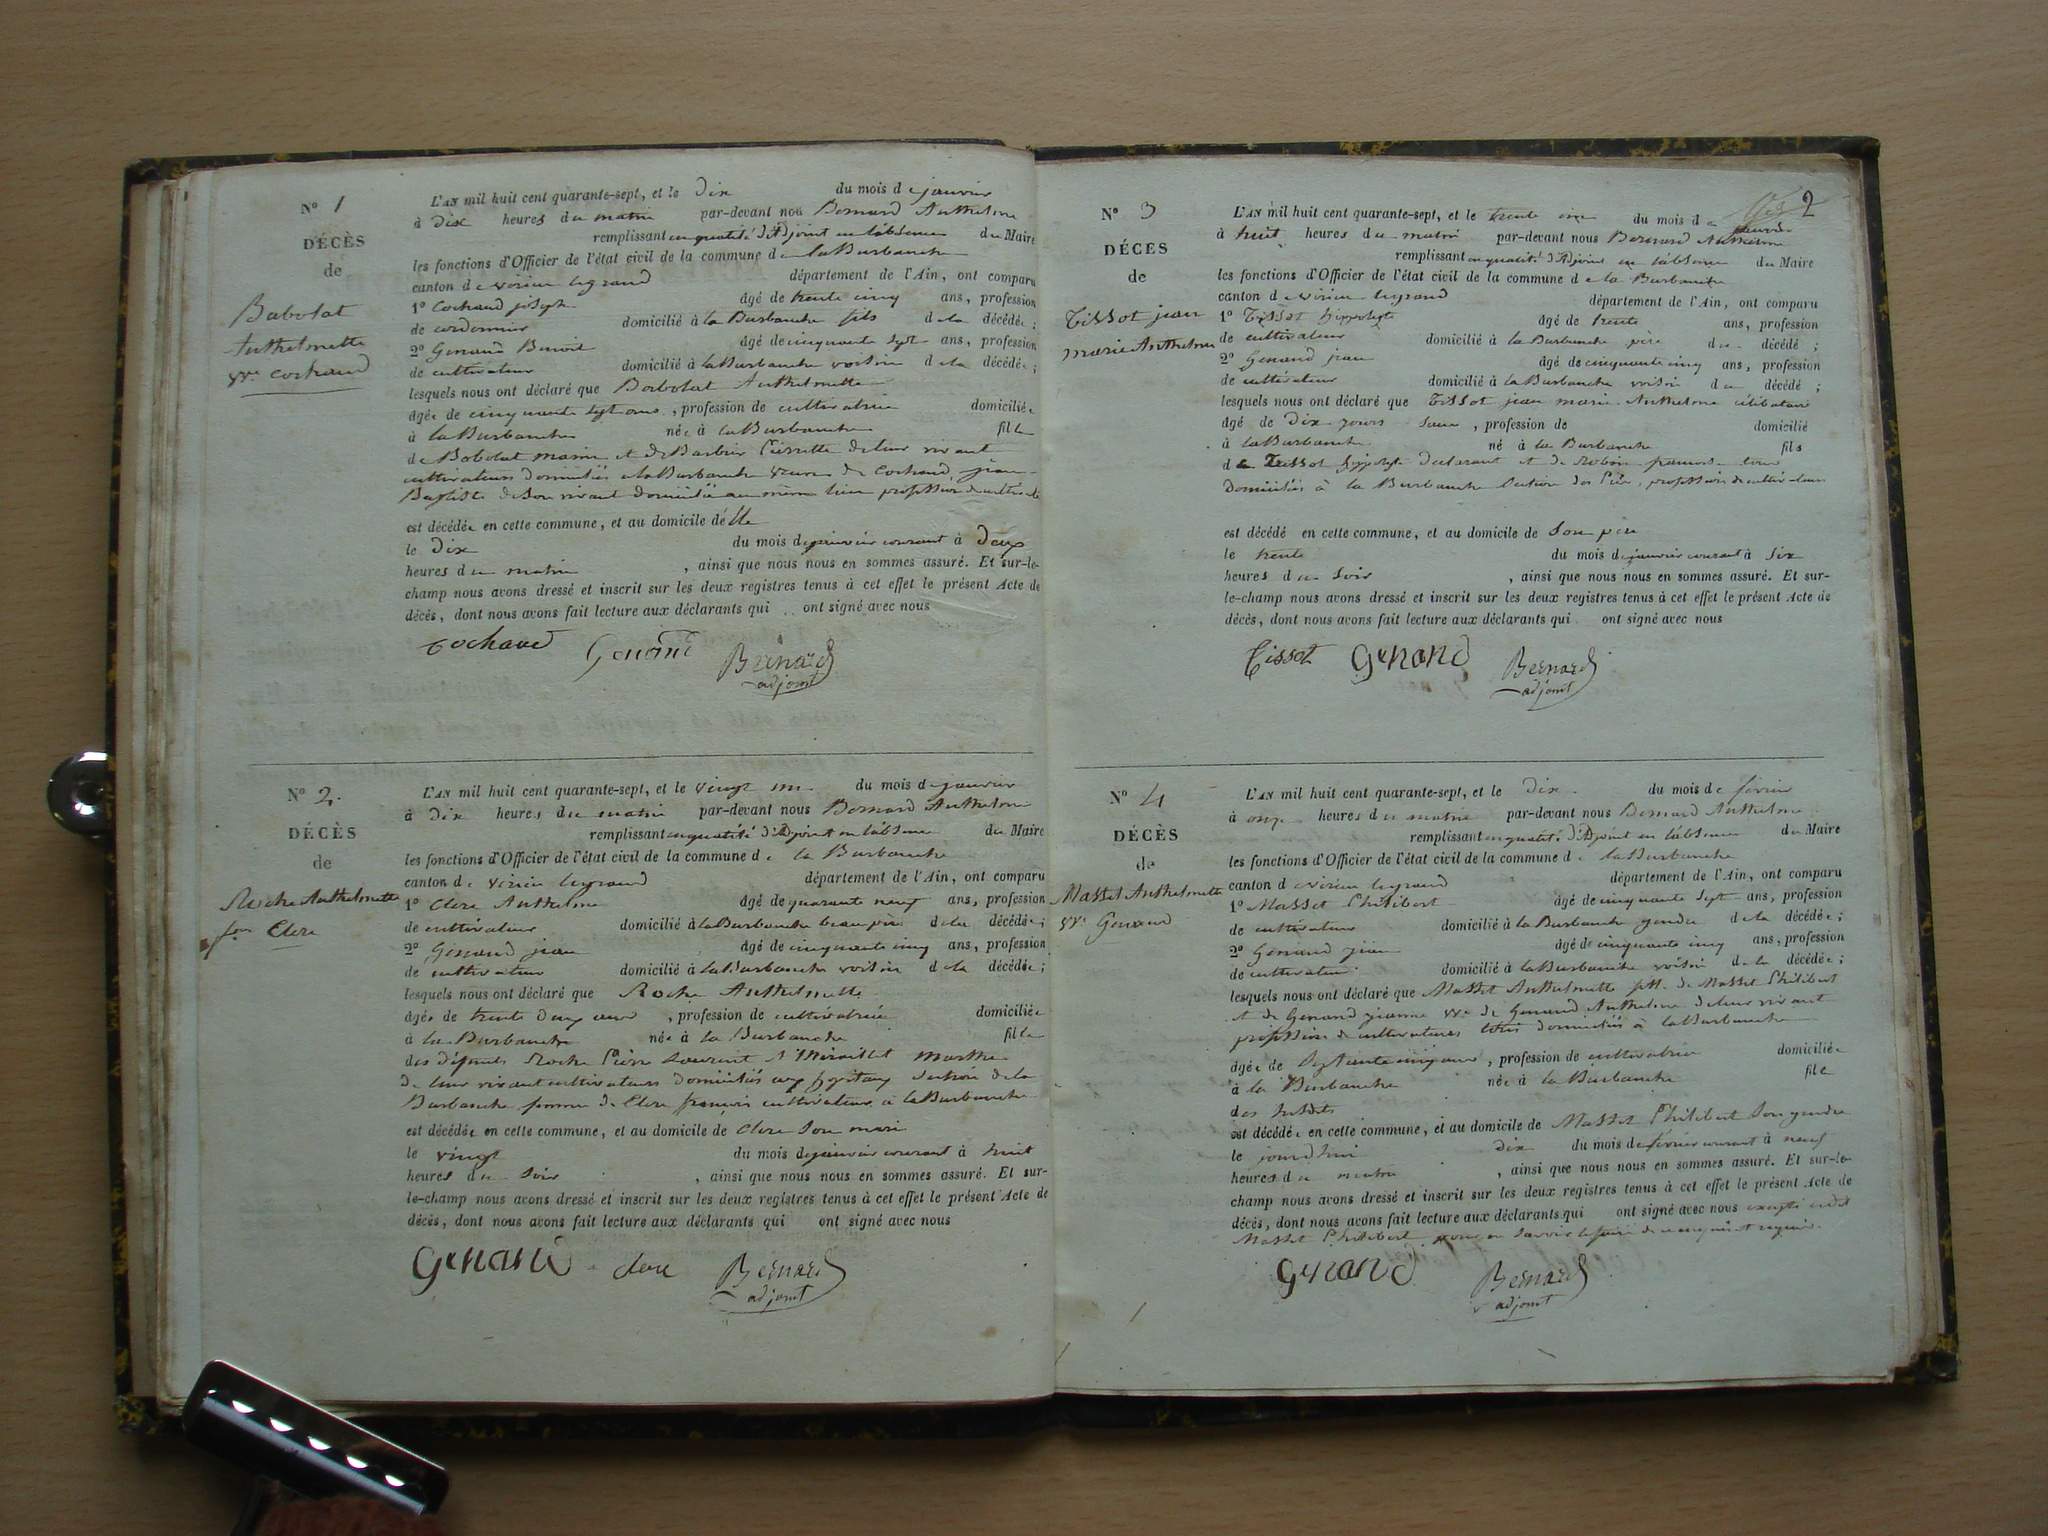 N° 1
DÉCÈS
de
Babolat
Anthelmette
vve Cochand
L'AN mil huit cent quarante-sept, et le Dix du mois de janvier
à Dix heures du matin par-devant nou Bernard Anthelme
remplissant en qualité d'Adjoint en l'absence du Maire
les fonctions d'Officier de l'état civil de la commune de la Burbanche
canton de virieu legrand département de l'Ain, ont comparu
1° Cochand joseph âgé de trente cinq ans, profession
de cordonnier domicilié à la Burbanche fils de la décédée ;
2° Genand Benoit âgé de cinquante sept ans, profession
de cultivateur domicilié à la Burbanche voisin de la décédée ;
lesquels nous ont déclaré que Babolat Anthelmette
âgée de cinquante sept ans, profession de cultivatrice domiciliée
à la Burbanche née à la Burbanche fille
de Bobolat marin et de Barbier Pierrette de leur vivant
cultivateurs domiciliés à la Burbanche veuve de Cochand jean-
Baptiste de son vivant domicilié au même lieu profession de
est décédée en cette commune, et au domicile d'elle
le Dix du mois de janvier courant à Deux
heures du matin, ainsi que nous nous en sommes assuré. Et sur-le-
champ nous avons dressé et inscrit sur les deux registres tenus à cet effet le présent Acte de
décès, dont nous avons fait lecture aux déclarants qui ont signé avec nous
Cochand Genand Bernard
adjoint
N° 2.
DÉCÈS
de
Roche Anthelmette
fem Clerc
L'AN mil huit cent quarante-sept, et le vingt un du mois de janvier
à Dix heures du matin par-devant nous Bernard Anthelme
remplissant en qualité d'Adjoint en l'absence du Maire
les fonctions d'Officier de l'état civil de la commune de la Burbanche
canton de virieu legrand département de l'Ain, ont comparu
1° Clerc Anthelme âgé de quarante neuf ans, profession
de cultivateur domicilié à la Burbanche beau père de la décédée ;
2° Genand jean âgé de cinquante cinq ans, profession
de cultivateur domicilié à la Burbanche voisin de la décédée ;
lesquels nous ont déclaré que Roche Anthelmette
âgée de trente Deux ans, profession de cultivatrice domiciliée
à la Burbanche née à la Burbanche fille
des défunts Roche Pierre Laurent et Miraillet Marthe
de leur vivant cultivateurs domiciliés aux hopitaux section de la
Burbanche femme de Clerc françois cultivateur à la Burbanche
est décédée en cette commune, et au domicile de Clerc son mari
le vingt du mois de janvier courant à huit
heures du soir, ainsi que nous nous en sommes assuré. Et sur-
le-champ nous avons dressé et inscrit sur les deux registres tenus à cet effet le présent Acte de
décès, dont nous avons fait lecture aux déclarants qui ont signé avec nous
Genand clerc Bernard
adjoint
2
N° 3
DÉCÈS
de
Tissot jean
marie Anthelme
L'AN mil huit cent quarante-sept, et le trente un du mois de janvier
à huit heures du matin par-devant nous Bernard Anthelme
remplissant en qualité d'Adjoint en l'absence du Maire
les fonctions d'Officier de l'état civil de la commune de la Burbanche
canton de virieu legrand département de l'Ain, ont comparu
1° Tissot hippolyte âgé de trente ans, profession
de cultivateur domicilié à la Burbanche père du décédé ;
2° Genand jean âgé de cinquante cinq ans, profession
de cultivateur domicilié à la Burbanche voisin du décédé ;
lesquels nous ont déclaré que Tissot jean marie Anthelme célibataire
âgé de Dix jours sans, profession de domicilié
à la Burbanche né à la Burbanche fils
de Tissot hippolyte declarant et de Robin tous
Domiciliés à la Burbanche section profession de cultivateurs
est décédé en cette commune, et au domicile de son père
le trente du mois de janvier courant à six
heures du soir, ainsi que nous nous en sommes assuré. Et sur-
le-champ nous avons dressé et inscrit sur les deux registres tenus à cet effet le présent Acte de
décès, dont nous avons fait lecture aux déclarants qui ont signé avec nous
Tissot Genand Bernard
adjoint
N° 4
DÉCÈS
de
Masset Anthelmette
vve Genand
L'AN mil huit cent quarante-sept, et le Dix du mois de février
à onze heures du matin par-devant nous Bernard Anthelme
remplissant en qualité d'Adjoint en l'absence du Maire
les fonctions d'Officier de l'état civil de la commune de la Burbanche
canton de virieu legrand département de l'Ain, ont comparu
1° Masset Philibert âgé de cinquante sept ans, profession
de cultivateur domicilié à la Burbanche gendre de la décédée ;
2° Genand jean âgé de cinquante cinq ans, profession
de cultivateur domicilié à la Burbanche voisin de la décédée ;
lesquels nous ont déclaré que Masset Anthelmette fille de Masset Philibert
et de Genand jeanne vve de Genand Anthelme de leur vivant
profession de cultivateurs domiciliés à la Burbanche
âgée de Septante cinq ans, profession de cultivatrice domiciliée
à la Burbanche née à la Burbanche fille
des susdits
est décédée en cette commune, et au domicile de Masset Philibert son gendre
le jourd'hui dix du mois de février courant à neuf
heures du matin, ainsi que nous nous en sommes assuré. Et sur-le-
champ nous avons dressé et inscrit sur les deux registres tenus à cet effet le présent Acte de
décès, dont nous avons fait lecture aux déclarants qui ont signé avec nous excepté ledit
Masset Philibert pour ne savoir le faire de ce enquis et requis.
Genand Bernard
adjoint